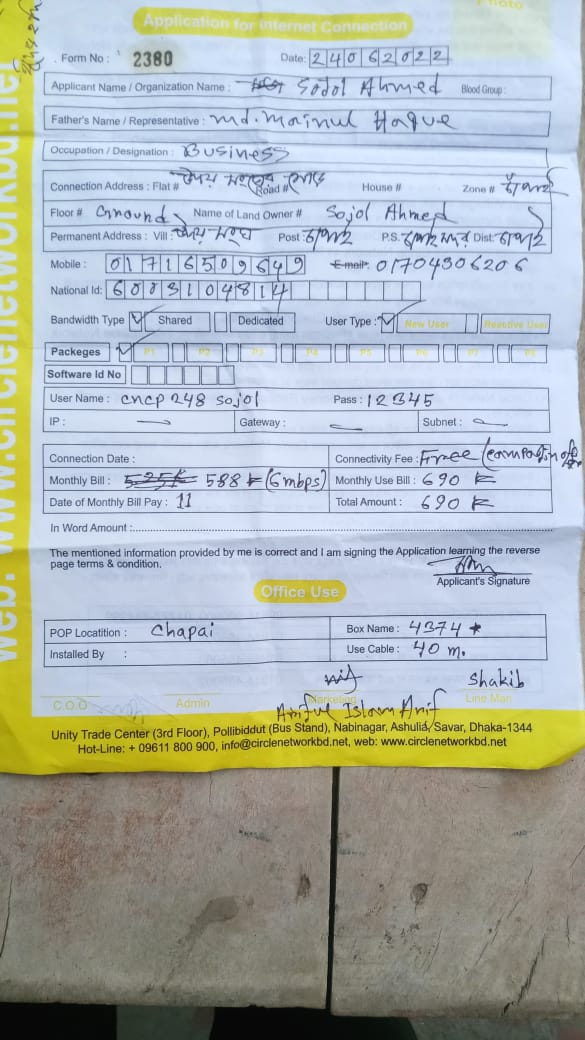 Photo
Application for Internet Connection
Form No : 2380 Date: 24062022
Applicant Name / Organization Name : Sojol Ahmed Blood Group :
Father's Name / Representative : md. Mainul Haque
Occupation / Designation : Business
Connection Address : Flat # Road # House # Zone #
Floor # Ground Name of Land Owner # Sojol Ahmed
Permanent Address : Vill : Post : P.S. Dist.
Mobile : 01716509649 E-mail: 01704306206
National Id: 6003104814
Bandwidth Type Shared Dedicated User Type : New User Reactive User
Packeges P1 P2 P3 P4 P5 P6 P7 P8
Software Id No
User Name : cncp 248 sojol Pass : 12345
IP : Gateway : Subnet :
Connection Date : Connectivity Fee : Free
Monthly Bill : 525 588 (6 mbps) Monthly Use Bill : 690
Date of Monthly Bill Pay : 11 Total Amount : 690
In Word Amount :
The mentioned information provided by me is correct and I am signing the Application learning the reverse
page terms & condition.
Applicant's Signature
Office Use
POP Locatition : Chapai Box Name : 4374
Installed By : Use Cable : 40 m.
Shakib
C.O.O Admin Marketing Line Man
Ariful Islam Arif
Unity Trade Center (3rd Floor), Pollibiddut (Bus Stand), Nabinagar, Ashulia, Savar, Dhaka-1344
Hot-Line: + 09611 800 900, info@circlenetworkbd.net, web: www.circlenetworkbd.net
web: www.circlenetworkbd.net